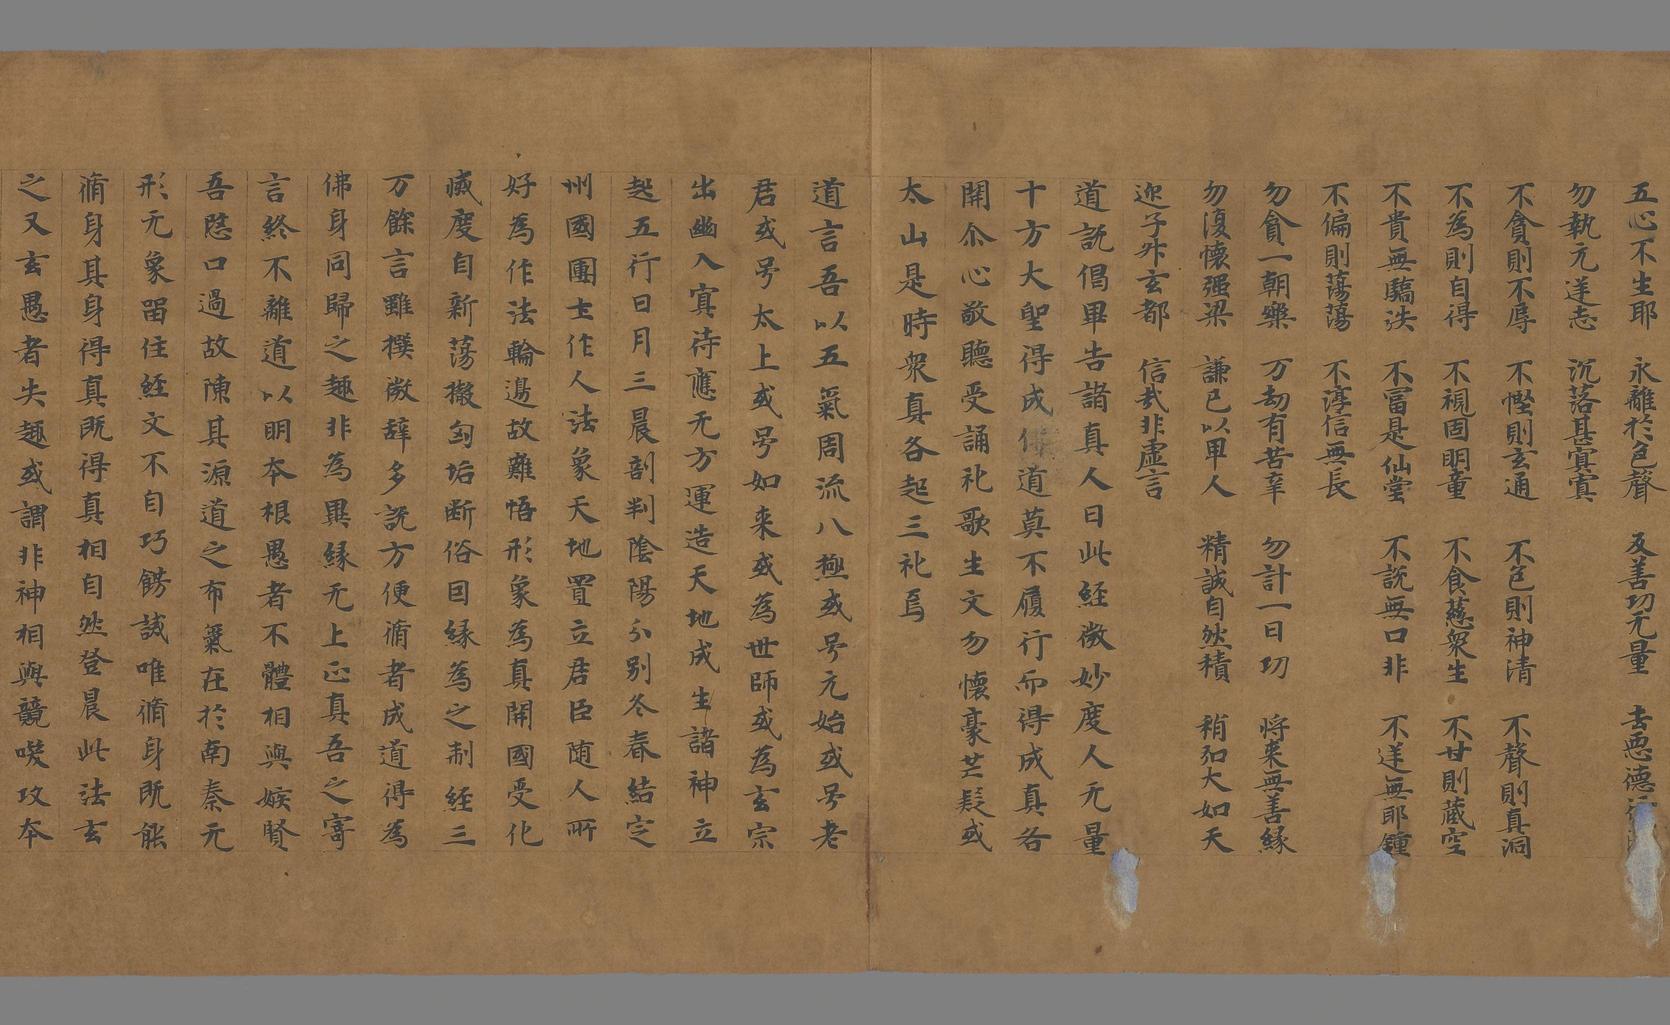 五心不生耶　永離於色聲　反善功无量　去惡德
勿執元逆志　沉落甚寘寘
不貪則不辱　不慳則玄通　不色則神清　不聲則真洞
不為則自得　不視固明童　不食慈衆生　不甘則藏空
不貴無驕泆　不富是仙堂　不說無口非　不逆無耶鐘
不偏則蕩蕩　不淳信無長
勿貪一朝樂　万劫有苦辛　勿計一日功　将来無善緣
勿復懷强梁　謙已以卑人　精誠自然積　稍如大如天
迎子升玄都　信哉非虛言
道說倡畢告諸真人曰此經微妙度人无量
十方大聖得成道莫不履行而得成真各
開尒心敬聽受誦礼歌生文勿懷豪芒疑或
太山是時衆真各起三礼焉
道言吾以五氣周流八極或号元始或号老
君或号太上或号如来或為世師或為玄宗
出幽入寘待應无方運造天地成生諸神立
起五行日月三晨剖判陰陽分別冬春結定
州國團主作人法象天地置立君臣随人所
好為作法輪邊故難悟形象為真開國受化
威度自新蕩撥匈垢断俗因緣為之制經三
万餘言雖撰微辞多說方便脩者成道得為
佛身同歸之趣非為異緣无上正真吾之寄
言終不離道以明本根愚者不體相與嫉賢
吾隱口過故陳其源道之布氣在於南秦无
形无象留住經文不自巧餝誠唯脩身既能
脩身其身得真既得真相自然登晨此法玄
之又玄愚者失趣或謂非神相與競嗷攻本